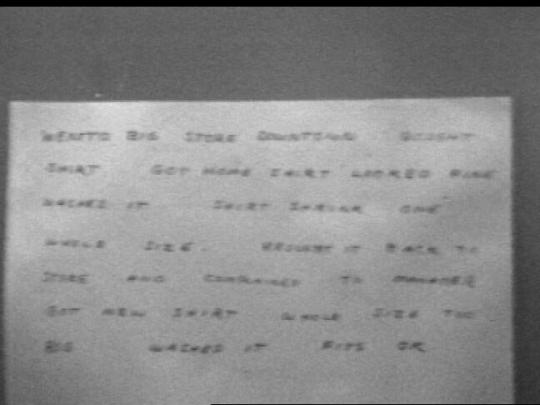 WENT TO BIG STORE DOWNTOWN BOUGHT
SHIRT GOT HOME SHIRT LOOKED FINE
WASHED IT SHIRT SHRUNK ONE
WHOLE SIZE. BROUGHT IT BACK TO
STORE AND COMPLAINED TO MANAGER
GOT NEW SHIRT WHOLE SIZE TOO
BIG WASHED IT FITS OK